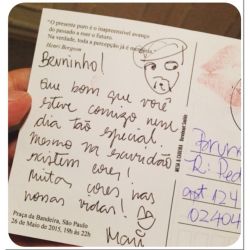 "O presente puro é o inapreensível avanço
do passado a roer o futuro.
Na verdade, toda a percepção já é memória."
Henri Bergson
Bruninho!
Que bom que você
esteve comigo num
dia tão especial
mesmo na escuridão
existem cores!
Muitas cores nas
nossas vidas!
Mari
Praça da Bandeira, São Paulo
26 de Maio de 2015, 19h às 22h
Brun
R: Ped
apt 124
02404